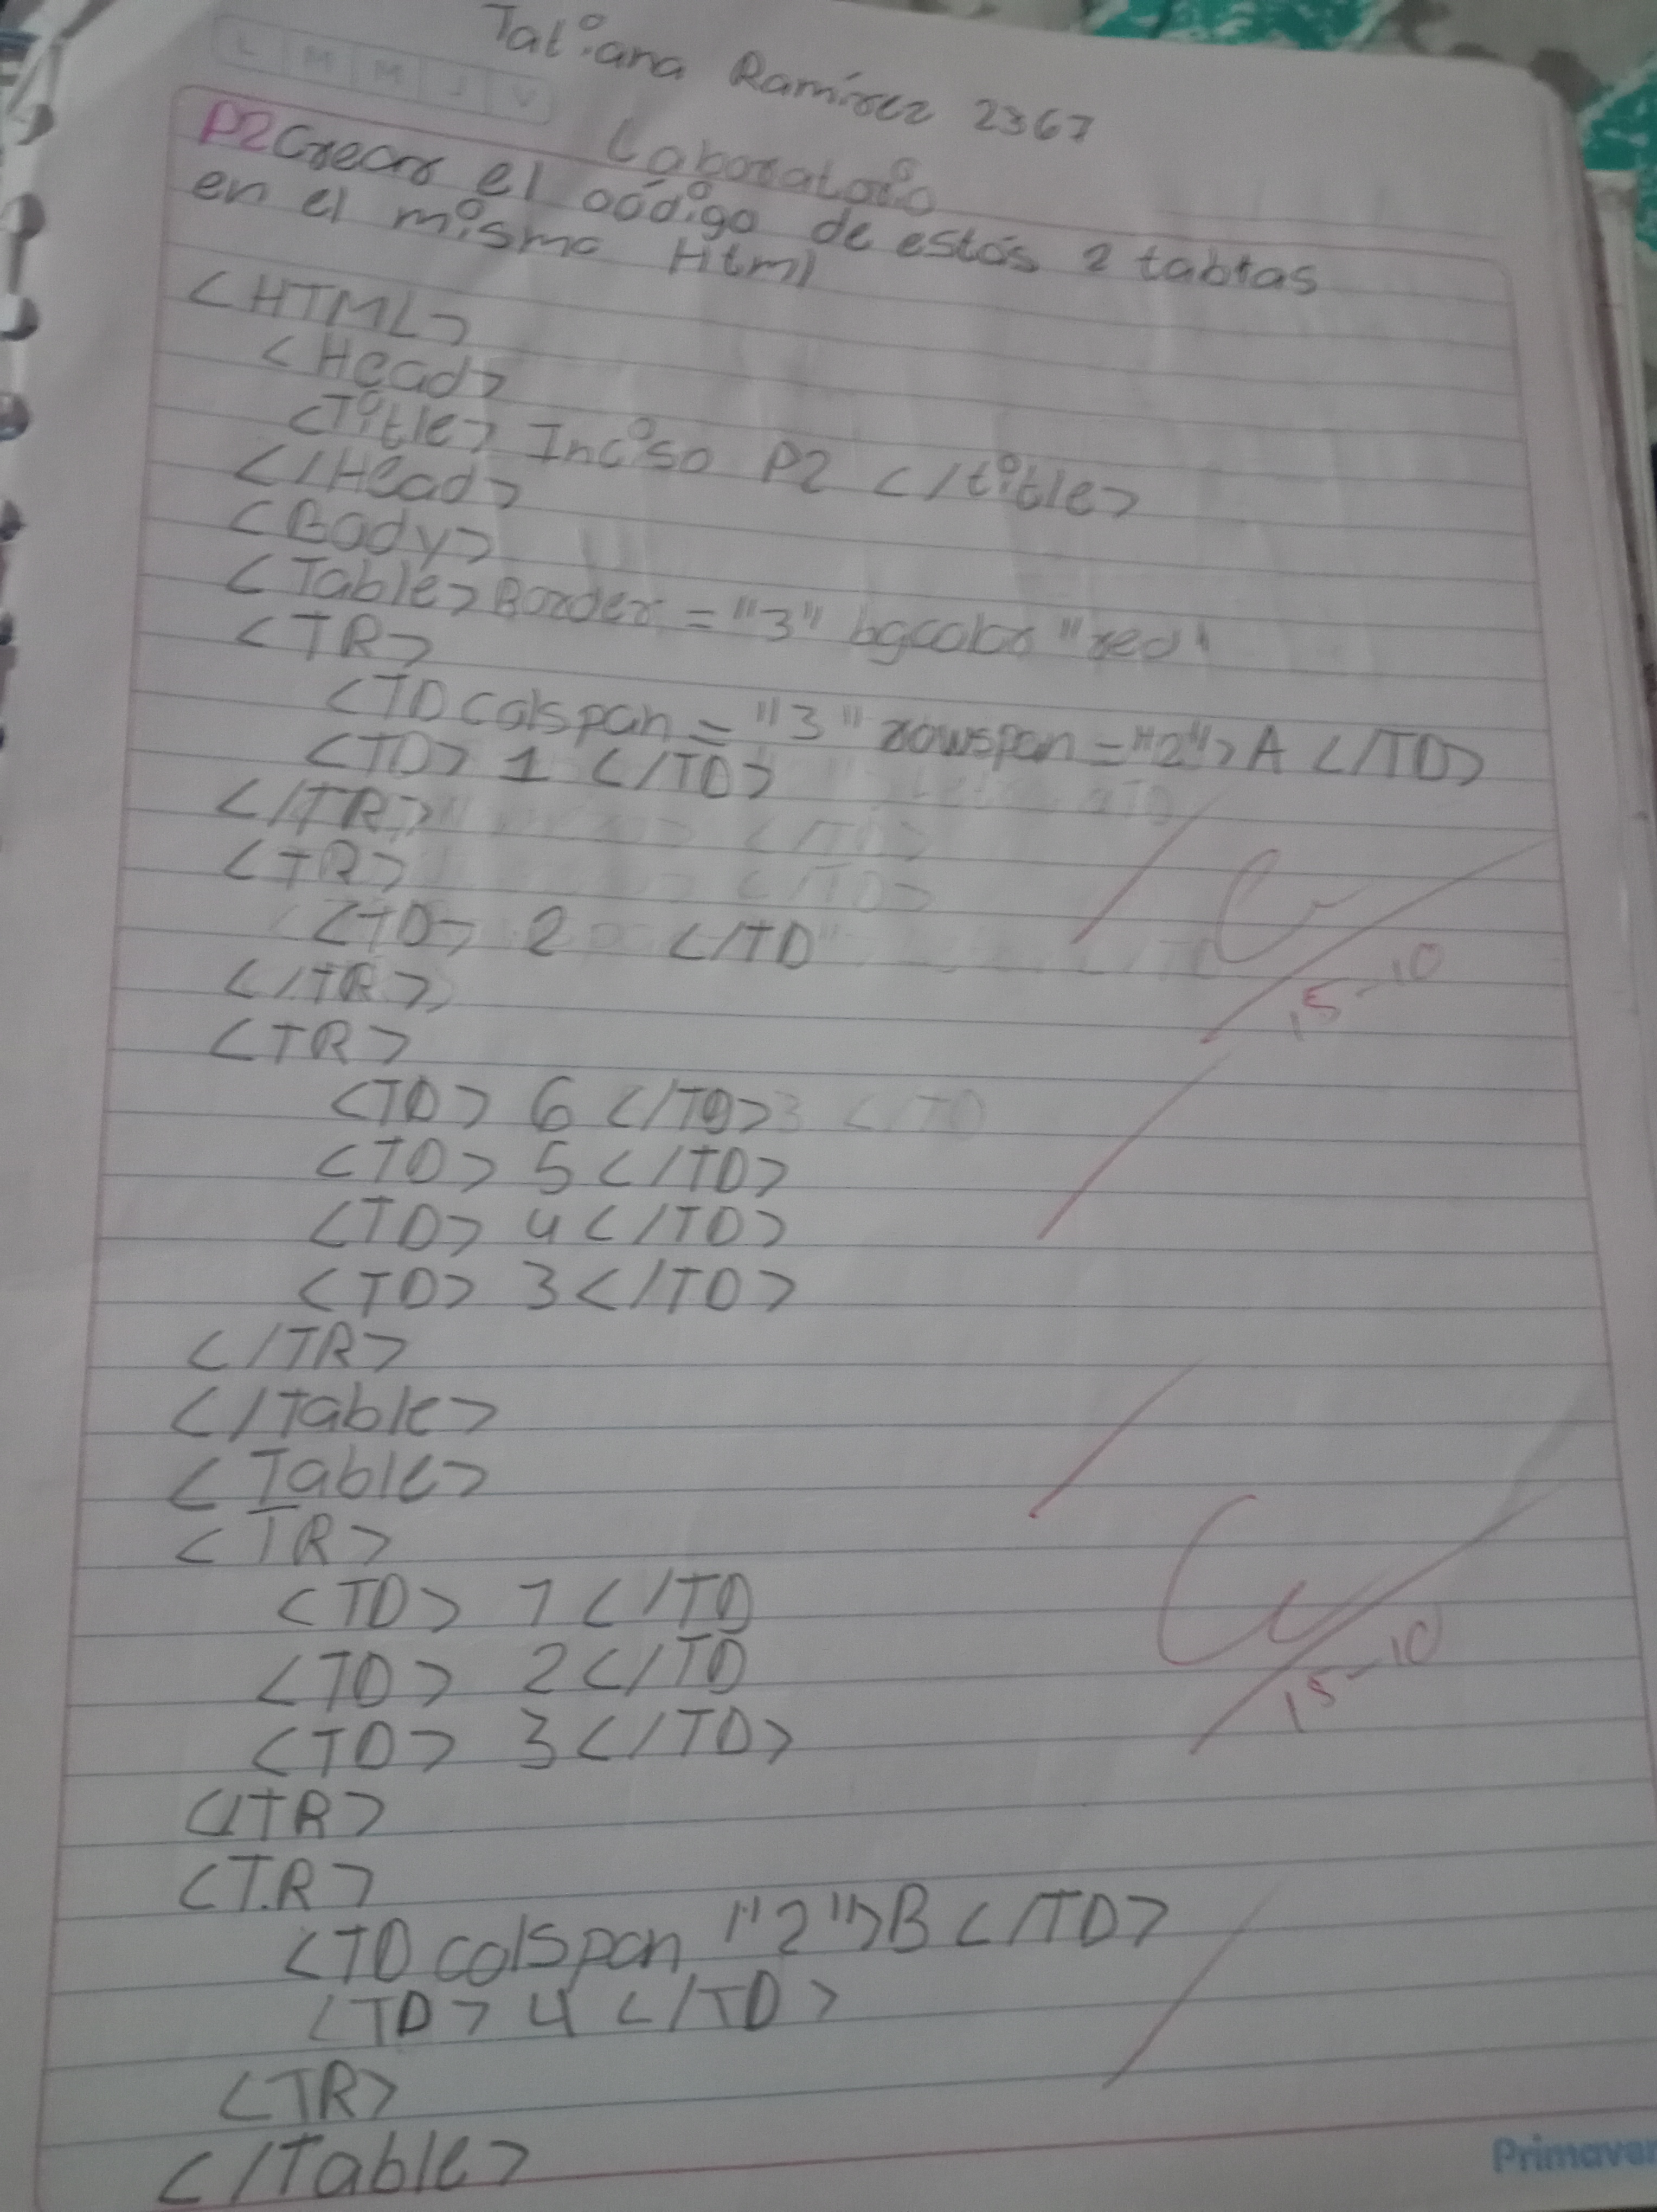 Tatiana Ramírez 2367
L M M J V
Laboratorio
P2 Crear el código de estós 2 tablas
en el mismo Html
<HTML>
<Head>
<Title> Inciso P2 </title>
</Head>
<Body>
<Table> Border = "3" bgcolor "red"
<TR>
<TD colspan = "3" rowspan = "2"> A </TD>
<TD> 1 </TD>
</TR>
<TR>
<TD> 2 </TD
</TR>
<TR>
<TD> 6 </TD>
<TD> 5 </TD>
<TD> 4 </TD>
<TD> 3 </TD>
</TR>
</Table>
<Table>
<TR>
<TD> 1 </TD
<TD> 2 </TD
<TD> 3 </TD>
</TR>
<TR>
<TD colspan "2"> B </TD>
<TD> 4 </TD>
<TR>
</Table>
15-10
15-10